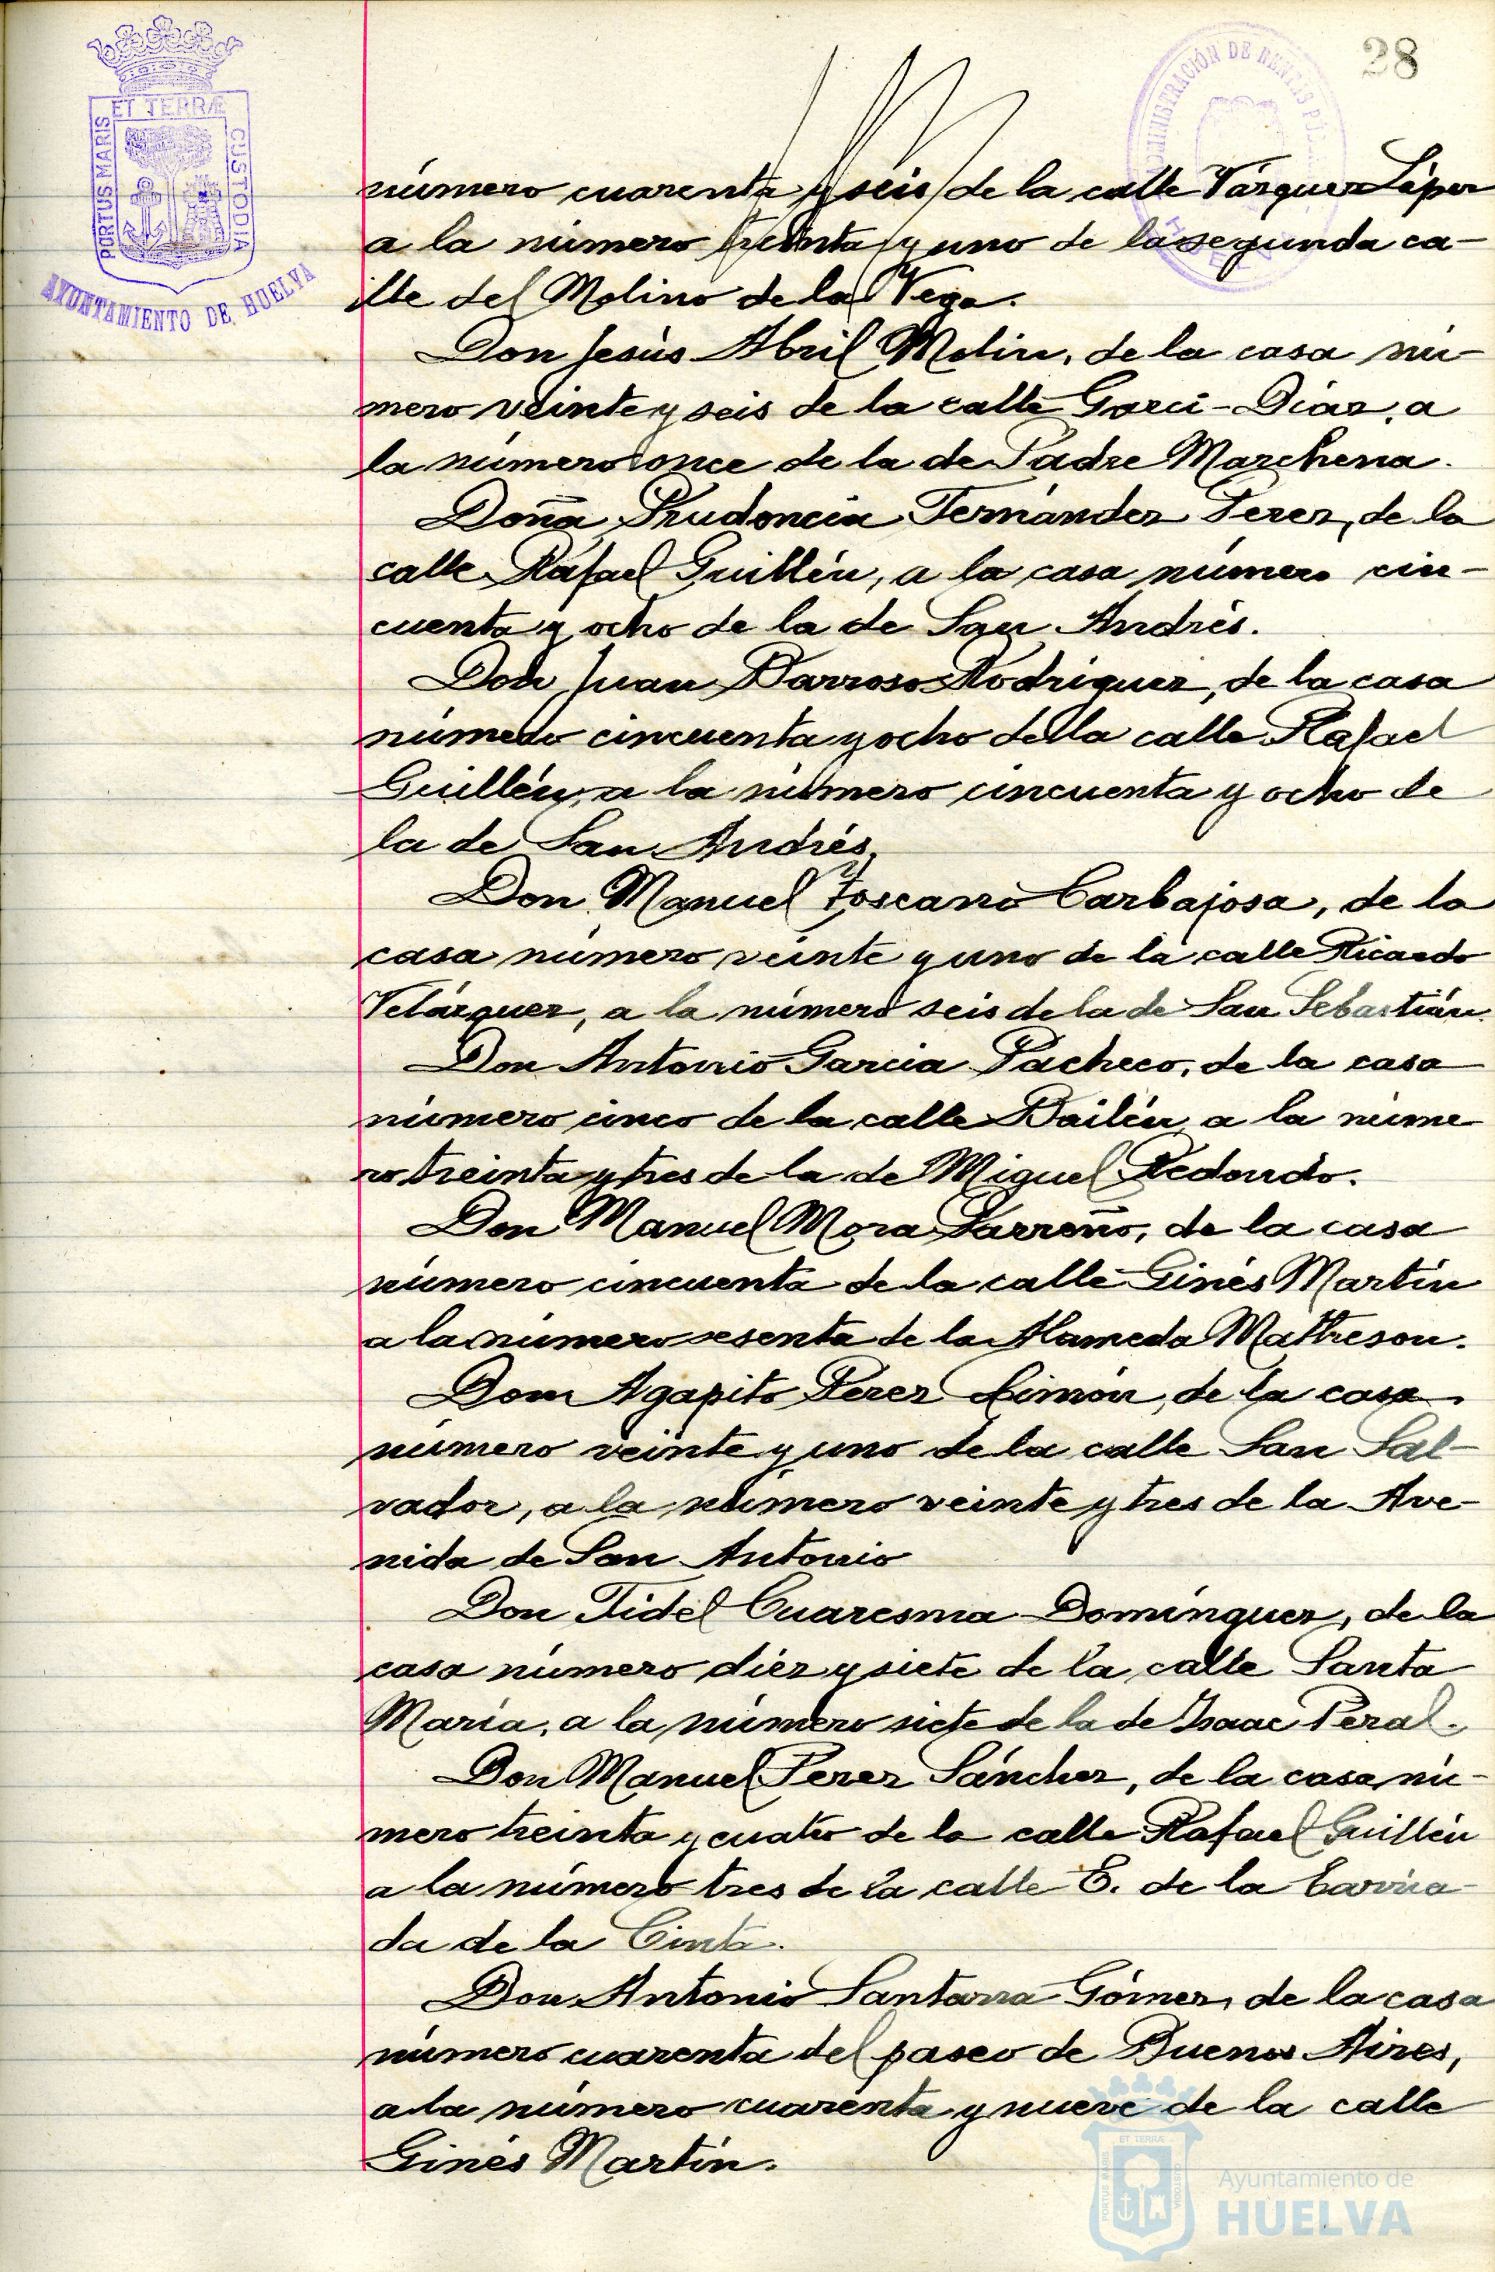 28
ET TERRÆ
PORTUS MARIS
CUSTODIA
AYUNTAMIENTO DE HUELVA
ADMINISTRACIÓN DE RENTAS
HUELVA
número cuarenta y seis de la calle Vázquez López
a la número treinta y uno de la segunda ca-
lle del Molino de la Vega.
Don Jesús Abril Molin, de la casa nú-
mero veinte y seis de la calle Garci-Díaz, a
la número once de la de Padre Marchena.
Doña Prudencia Fernández Perez, de la
calle Rafael Guillén, a la casa número cin-
cuenta y ocho de la de San Andrés.
Don Juan Barroso Rodriguez, de la casa
número cincuenta y ocho de la calle Rafael
Guillén, a la número cincuenta y ocho de
la de San Andrés,
Don Manuel Toscano Carbajosa, de la
casa número veinte y uno de la calle Ricardo
Velázquez, a la número seis de la de San Sebastián.
Don Antonio Garcia Pacheco, de la casa
número cinco de la calle Bailén a la núme
ro treinta y tres de la de Miguel Redondo.
Don Manuel Mora , de la casa
número cincuenta de la calle Ginés Martín
a la número sesenta de la Alameda Matheson.
Don Agapito Perez Limón, de la casa
número veinte y uno de la calle San Sal-
vador, a la número veinte y tres de la Ave-
nida de San Antonio
Don Fidel Cuaresma Domínguez, de la
casa número diez y siete de la calle Santa
María, a la número siete de la de Isaac Peral.
Don Manuel Perez Sánchez, de la casa nú-
mero treinta y cuatro de la calle Rafael Guillén
a la número tres de la calle E. de la barria-
da de la Cinta.
Don Antonio Santana Gómez, de la casa
número cuarenta del paseo de Buenos Aires,
a la número cuarenta y nueve de la calle
Ginés Martín.
ET TERRÆ
PORTUS MARIS
CUSTODIA
Ayuntamiento de
HUELVA